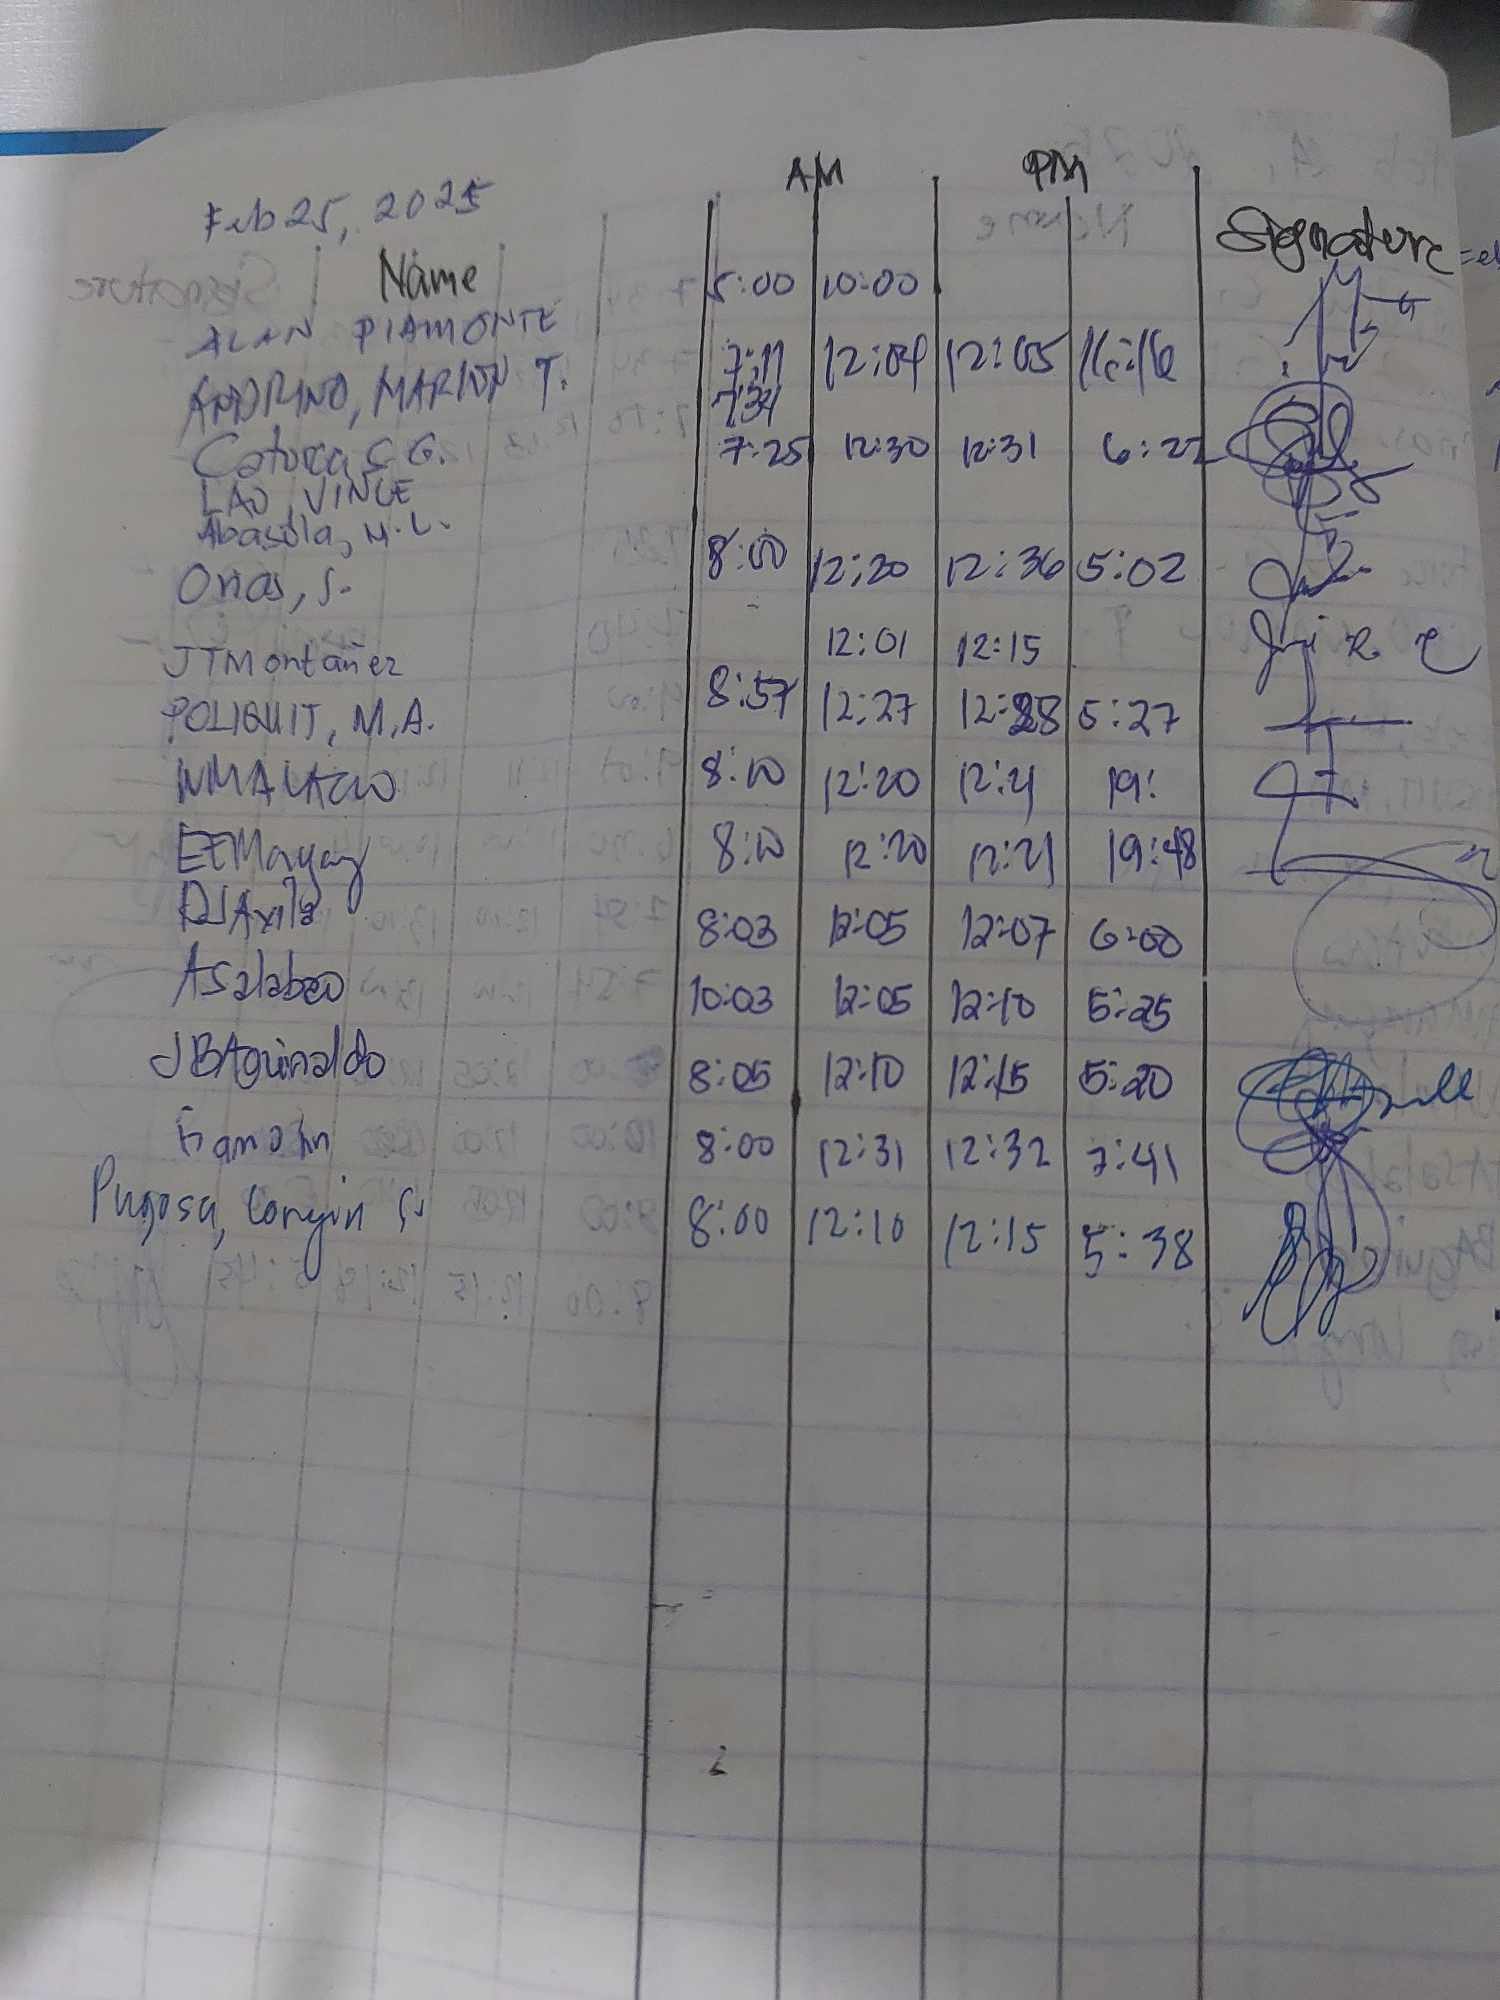 AM PM
Feb 25, 2025
Name Signature
5:00 10:00
ALAN PIAMONTE
ANDRINO, MARION T. 7:11 12:04 12:05 16:16
7:34
Catura, C G. 7:25 12:30 12:31 6:22
LAO, VINCE
Abasola, M.L.
Onas, J. 8:00 12:20 12:36 5:02
JTMontañez 12:01 12:15
POLIQUIT, M.A. 8:57 12:27 12:28 5:27
8:10 12:20 12:21 19:
EEMangay 8:10 12:20 12:21 19:48
DJAxilo 8:03 12:05 12:07 6:00
ASalabao 10:03 12:05 12:10 5:25
JBAguinaldo 8:05 12:10 12:15 5:20
8:00 12:31 12:32 7:41
Pugosa, Longin S. 8:00 12:10 12:15 5:38